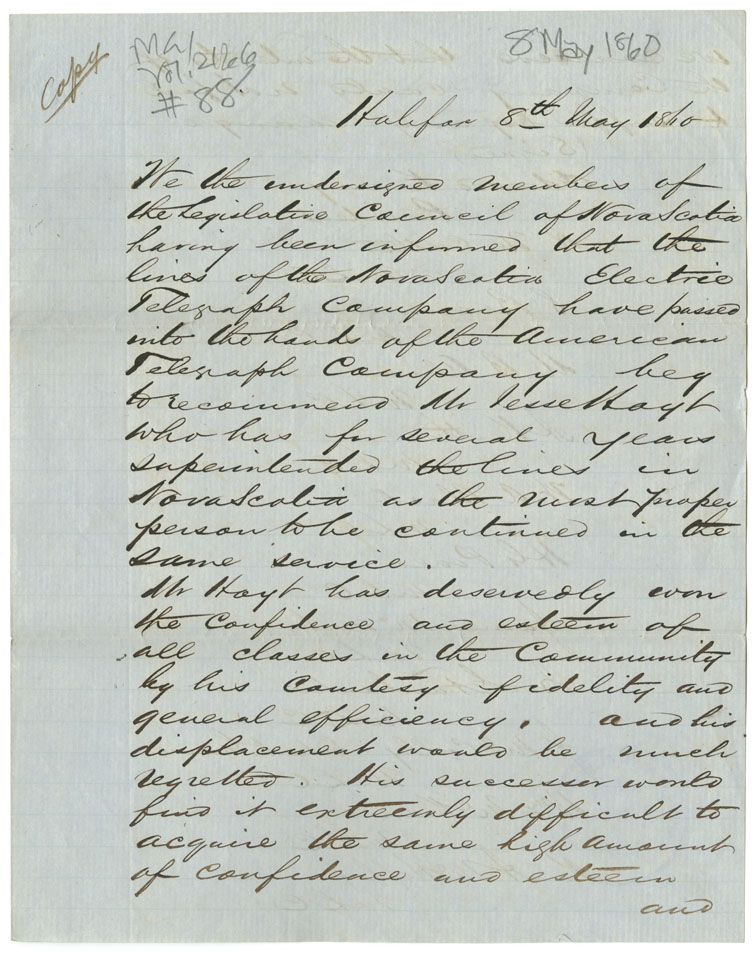 copy
MG1
Vol. 2166
# 88.
8 May 1860
Halifax 8th May 1860
We the undersigned members of
the Legislative Council of Nova Scotia
having been informed that the
lines of the Nova Scotia Electric
Telegraph Company have passed
into the hands of the American
Telegraph Company beg
to recommend Mr Jesse Hoyt
who has for several years
superintended the lines in
Nova Scotia as the most proper
person to be continued in the
same service.
Mr Hoyt has deservedly won
the Confidence and esteem of
all classes in the Community
by his Courtesy fidelity and
general efficiency. and his
displacement would be much
regretted. His successor would
find it extreemly difficult to
acquire the same high amount
of Confidence and esteem
and